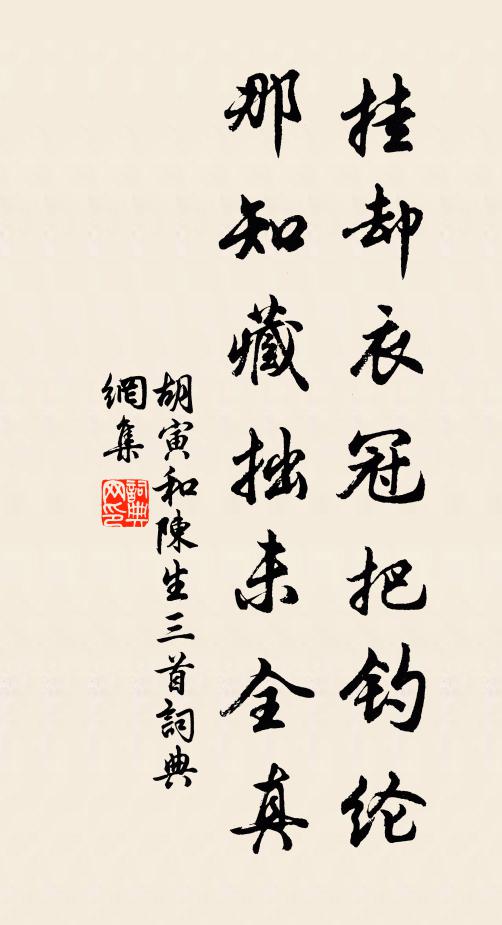 挂却衣冠把钓纶
那知藏拙未全真
胡寅和陳生三首詞典
網集
詞典
网印